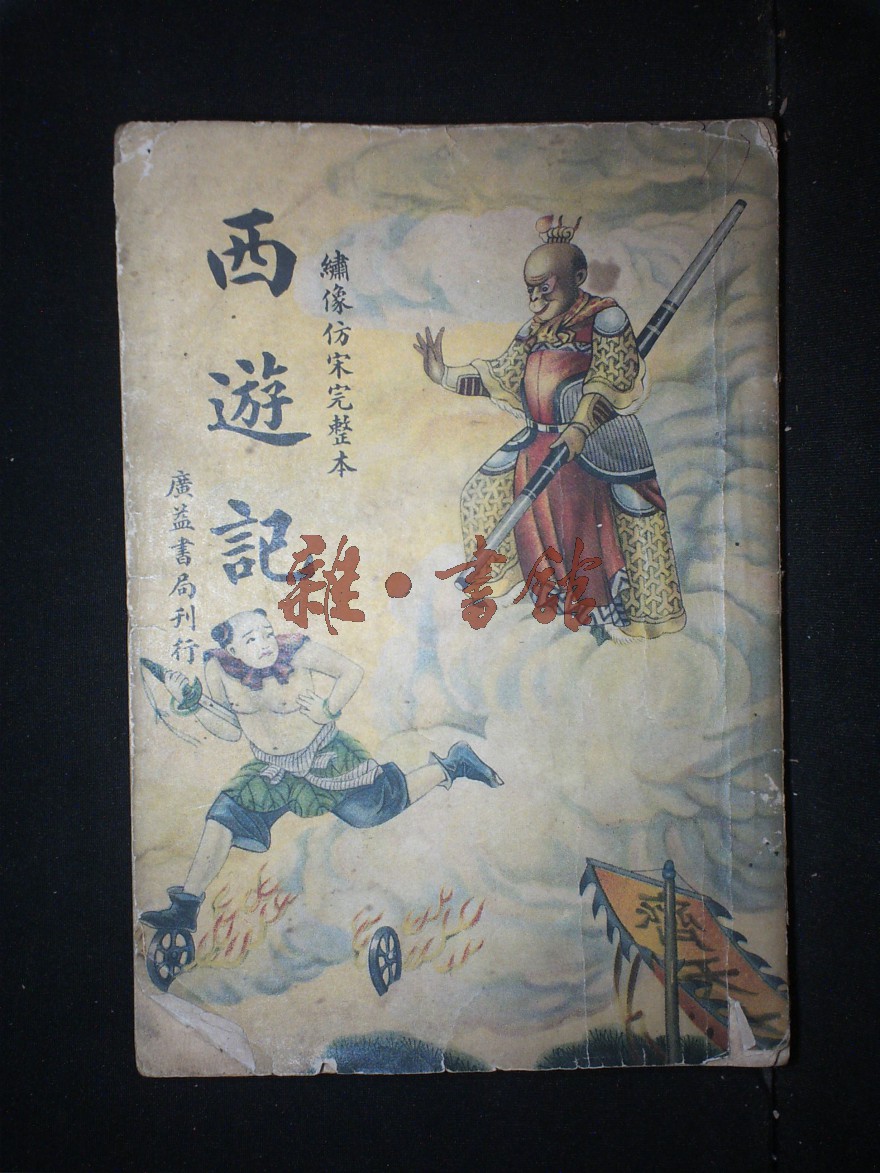 西遊記
繡像仿宋完整本
廣益書局刊行
雜·書館